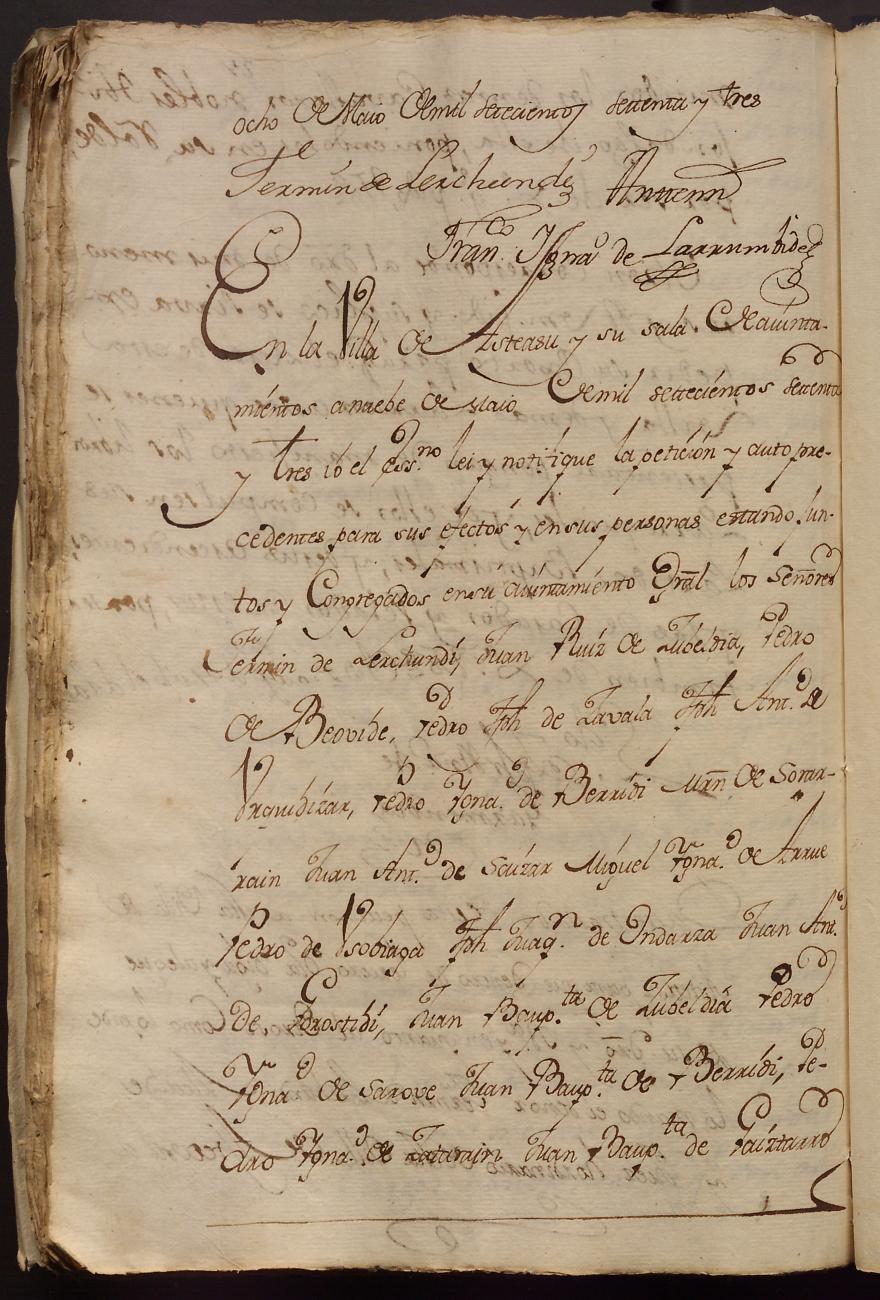 ocho de Maio de mil setecientos settenta y tres
Fermin de Lerchundi Anttemi
Fran.co Ygna.o de Larrumbide
En la Villa de Asteasu y su sala de aiunta-
mientos a nuebe de Maio de mil settecientos settenta
y tres io el ess.no lei y notifique la peticion y auto pre-
cedentes para sus efectos y en sus personas estando Jun-
tos y Congregados en su aiuntamiento Gral los Señores
Fermin de Lerchundi, Juan Ruiz de Zubeldia, Pedro
de Beovide, Pedro Jph de Zavala Jph Ant.o de
Vrquidizar, Pedro Ygna.o de Berridi Mrn de Sorar-
rain Juan Ant.o de Saizar Miguel Ygna.o de Arrue
Pedro de Vsobiaga Jph Juaq.n de Indarza Juan Ant.o
de Erostibi, Juan Baup.ta de Zubeldia Pedro
Ygna.o de Sarove Juan Baup.ta de Berridi, Pe-
dro Ygna.o de Zatarain Juan Baup.ta de